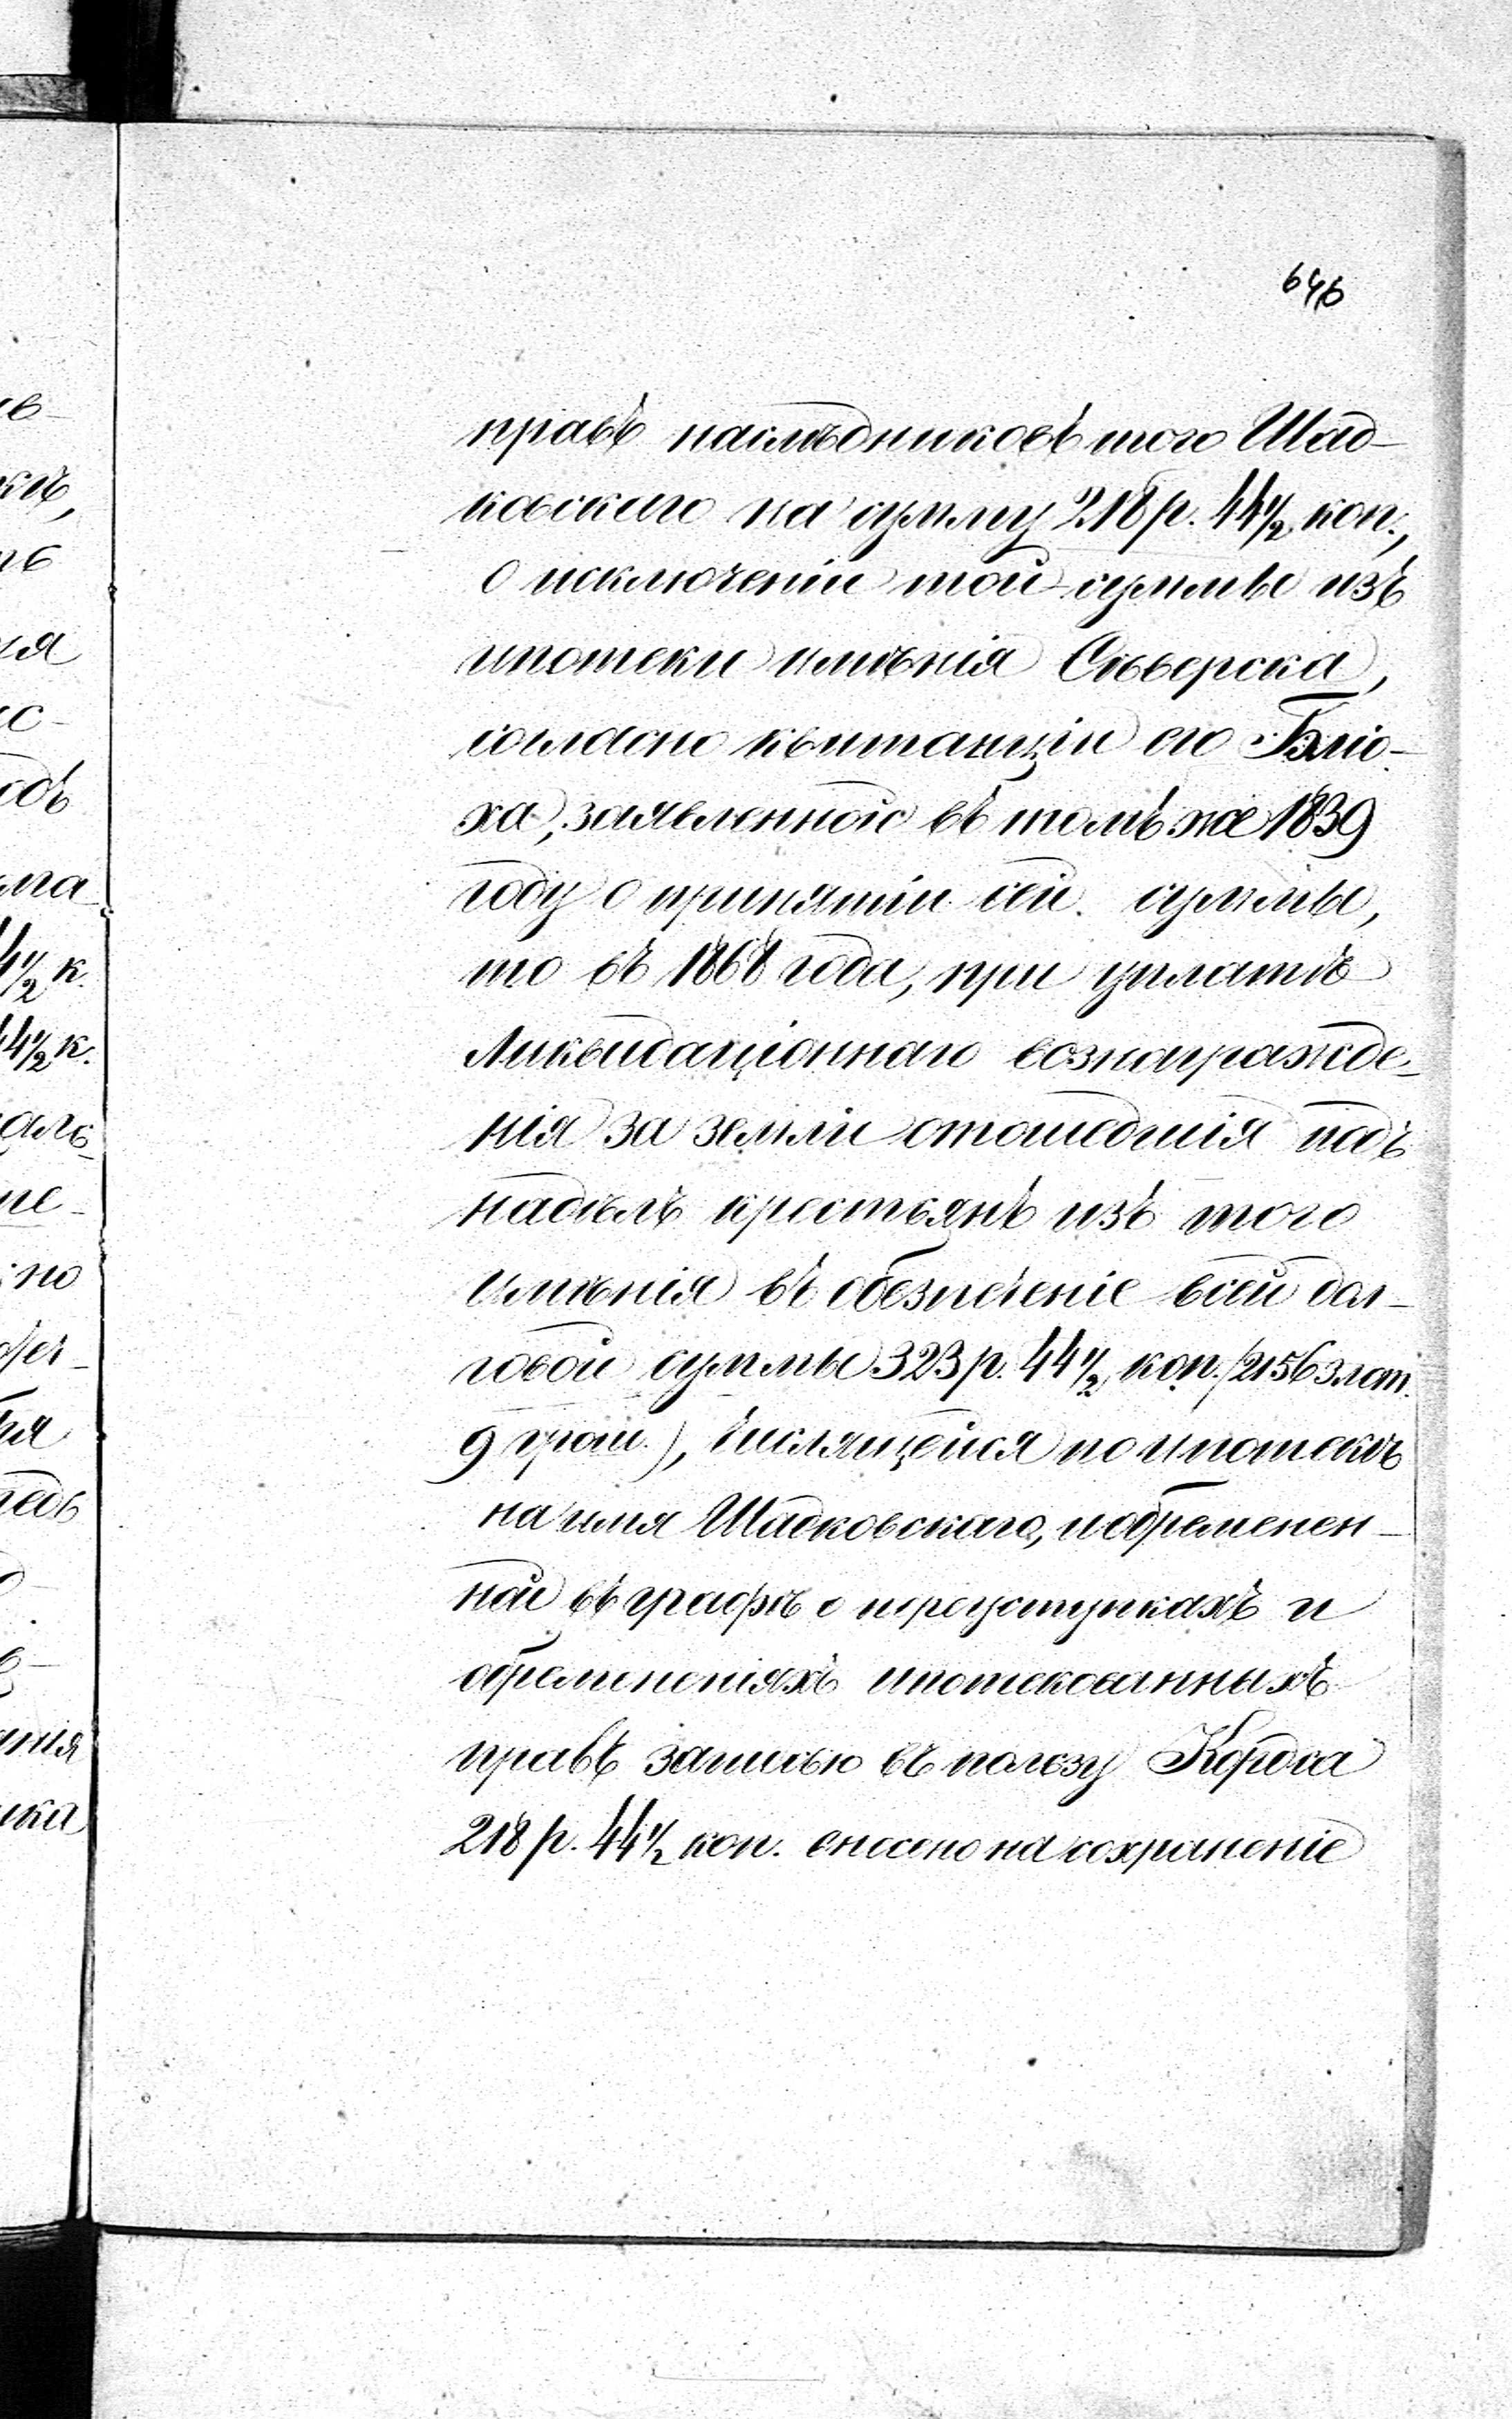 646
правъ наслѣдниковъ того Шад-
ковскаго на сумму 218 р. 44½ коп.,
о исключеніи той суммы изъ
ипотеки имѣнія Сьверска,
согласно квитанціи его Блю-
ха, заявленной въ томъ же 1839
году о принятіи сей суммы,
то въ 1868 года, при уплатѣ
Ликвидаціоннаго вознагражде-
нія за земли отошедшія подъ
надѣлъ крестьянъ изъ того
имѣнія въ обезпеченіе всей дол-
говой суммы 323 р. 44½ коп. (2156 злот.
9 грош.), числящейся по ипотекѣ
на имя Шадковскаго, и обременен-
ной въ графѣ о переуступкахъ и
обремененіяхъ ипотекованныхъ
правъ записью въ пользу Кордоа
218 р. 44½ коп. внесено на сохраненіе